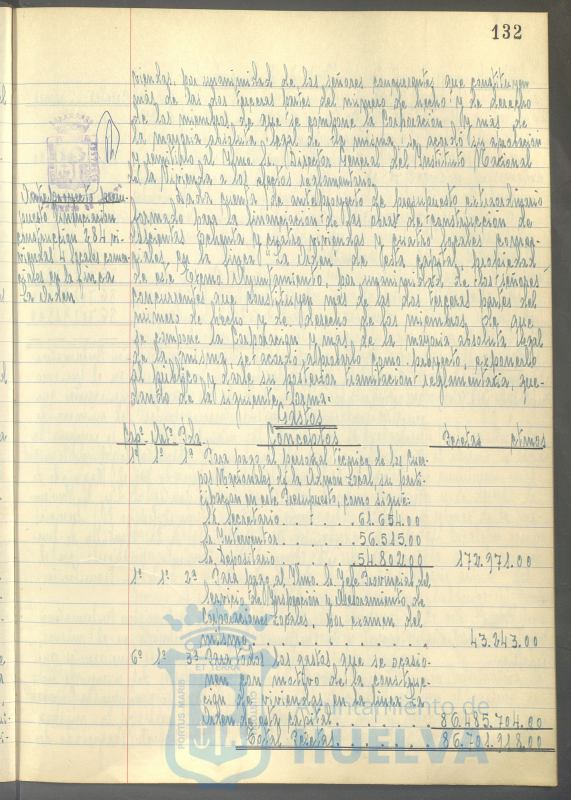 132
viendas, por unanimidad de los señores concurrentes que constituyen
más de las dos terceras partes del número de hecho y de derecho
de los miembros de que se compone la Corporación y más de
la mayoría absoluta legal de la misma, se acordó su aprobación
y remitirlo al Iltmo. Sr. Director General del Instituto Nacional
de la Vivienda a los efectos reglamentarios.
Anteproyecto presu-
puesto
construcción 284 vi-
viendas 4 locales comer-
ciales en la finca
La Orden
Dada cuenta de anteproyecto de presupuesto extraordinario
formado para la financiación de las obras de construcción de
doscientas ochenta y cuatro viviendas y cuatro locales comer-
ciales, en la finca "La Orden" de esta capital, propiedad
de este Excmo. Ayuntamiento, por unanimidad de los señores
concurrentes que constituyen más de las dos terceras partes del
número de hecho y de derecho de los miembros de que
se compone la Corporación y más de la mayoría absoluta legal
de la misma, se acordó aprobarlo como proyecto, exponerlo
al público y darle su posterior tramitación reglamentaria, que-
dando de la siguiente forma:
Gastos
Cap.º Art.º Pda. Conceptos Pesetas ctmos
1º 1º 1º Para pago al personal Técnico de los Cuer-
pos Nacionales de la Admón Local, su parti-
cipación en este Presupuesto, como sigue:
Sr. Secretario . . . . . . 61.654.00
Sr. Interventor . . . . . . 56.515.00
Sr. Depositario . . . . . . 54.802.00 172.971.00
1º 1º 2º Para pago al Iltmo. Sr. Jefe Provincial del
Servicio de Inspección y Asesoramiento de
Corporaciones Locales, por examen del
mismo . . . . . . . . . . 43.243.00
6º 1º 3º Para todos los gastos que se ocasio-
nen con motivo de la construc-
ción de viviendas en la finca La
Orden de esta capital . . . . . . 86.485.704.00
Total Pesetas . . . . . . . 86.701.918.00
PORTUS MARIS ET TERRAE CUSTODIA
Ayuntamiento de
HUELVA